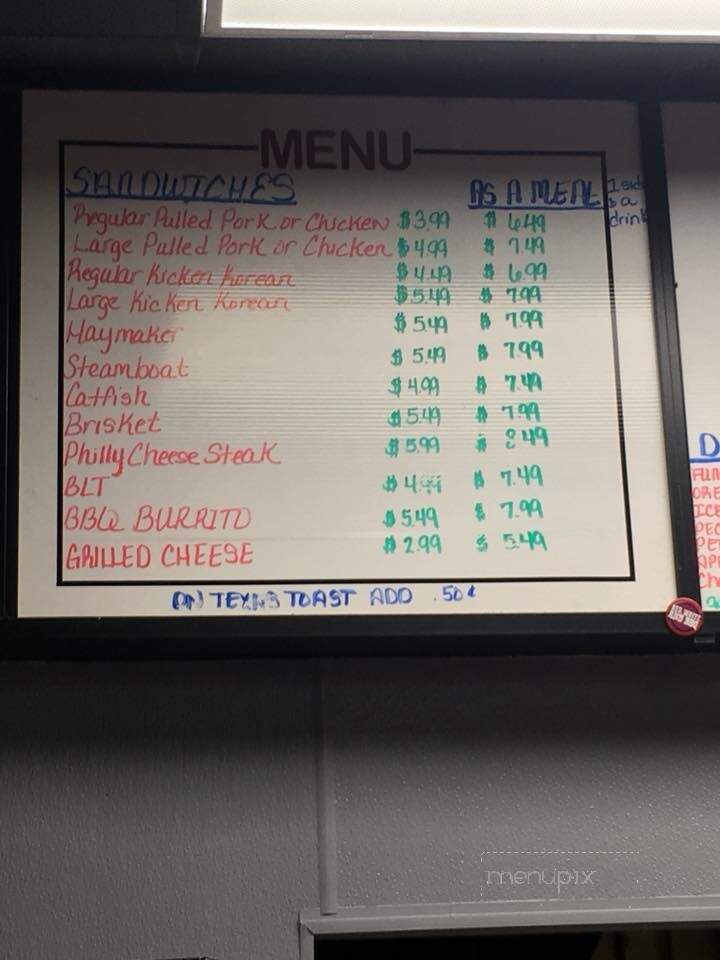 MENU
SANDWICHES AS A MEAL 1 side
& a
drink
Regular Pulled Pork or Chicken $3.99 $6.49
Large Pulled Pork or Chicken $4.99 $7.49
Regular Kicken Korean $4.49 $6.99
Large Kicken Korean $5.49 $7.99
Haymaker $5.49 $7.99
Steamboat $5.49 $7.99
Catfish $4.99 $7.49
Brisket $5.49 $7.99
Philly Cheese Steak $5.99 $8.49
BLT $4.99 $7.49
BBQ BURRITO $5.49 $7.99
GRILLED CHEESE $2.99 $5.49
ON TEXAS TOAST ADD .50¢
D
FUN
ORE
ICE
PEC
PE
API
Ch
menupix